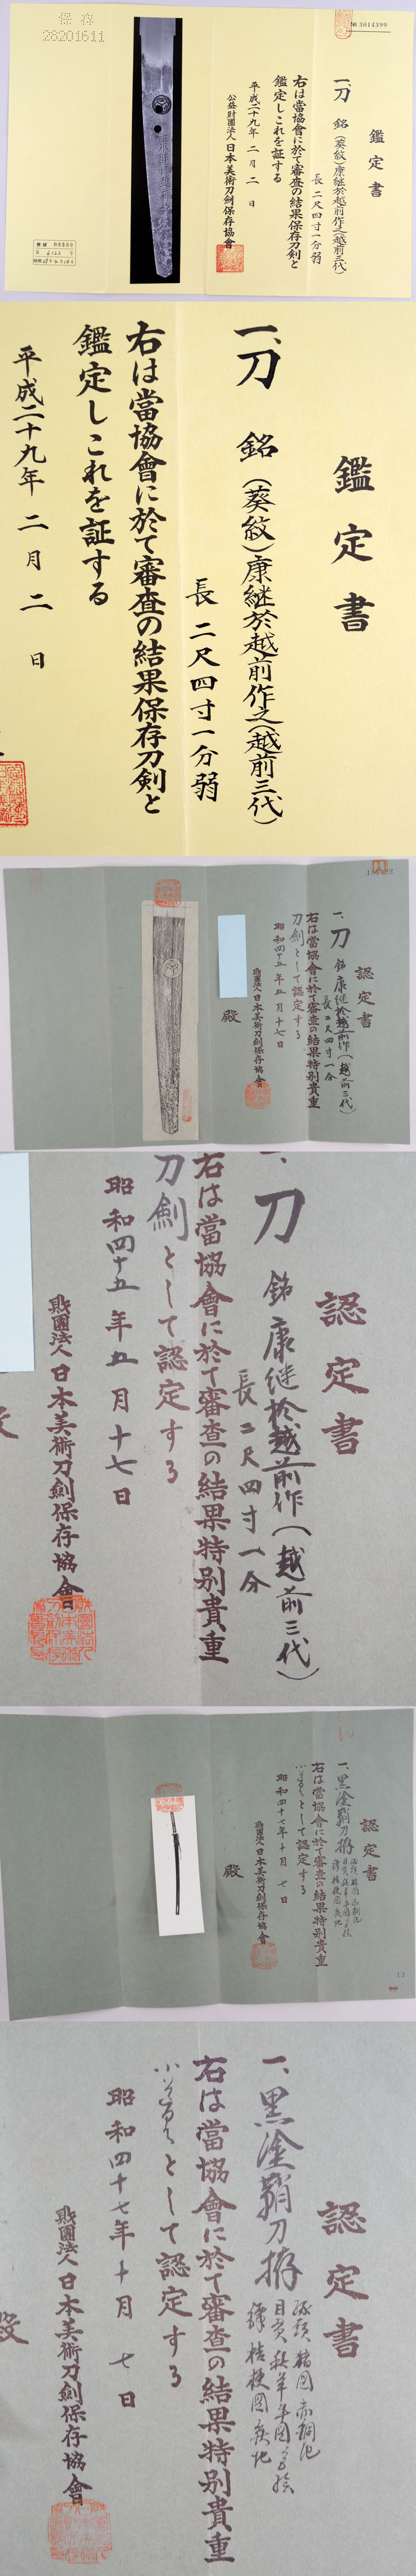 保存
28201611
№ 3014399
鑑定書
一、刀 銘 (葵紋)康継於越前作之(越前三代)
長 二尺四寸一分弱
右は當協會に於て審査の結果保存刀剣と
鑑定しこれを証する
平成二十九年 二月 二 日
公益財團法人 日本美術刀劍保存協會
鑑定書
一、刀 銘 (葵紋)康継於越前作之(越前三代)
長 二尺四寸一分弱
右は當協會に於て審査の結果保存刀剣と
鑑定しこれを証する
平成二十九年 二月 二 日
認定書
一、刀 銘 康継於越前作(越前三代)
長二尺四寸一分
右は當協會に於て審査の結果特別貴重
刀劍として認定する
昭和四十五年五月十七日
財團法人 日本美術刀劍保存協會
殿
認定書
一、刀 銘 康継於越前作(越前三代)
長二尺四寸一分
右は當協會に於て審査の結果特別貴重
刀劍として認定する
昭和四十五年五月十七日
財團法人 日本美術刀劍保存協會
認定書
一、黒塗鞘刀拵
右は當協會に於て審査の結果特別貴重
小道具として認定する
昭和四十七年十月 七日
財團法人 日本美術刀劍保存協會
殿
13
認定書
一、黒塗鞘刀拵
鐔 桔梗図
右は當協會に於て審査の結果特別貴重
小道具として認定する
昭和四十七年十月 七日
財團法人 日本美術刀劍保存協會
殿